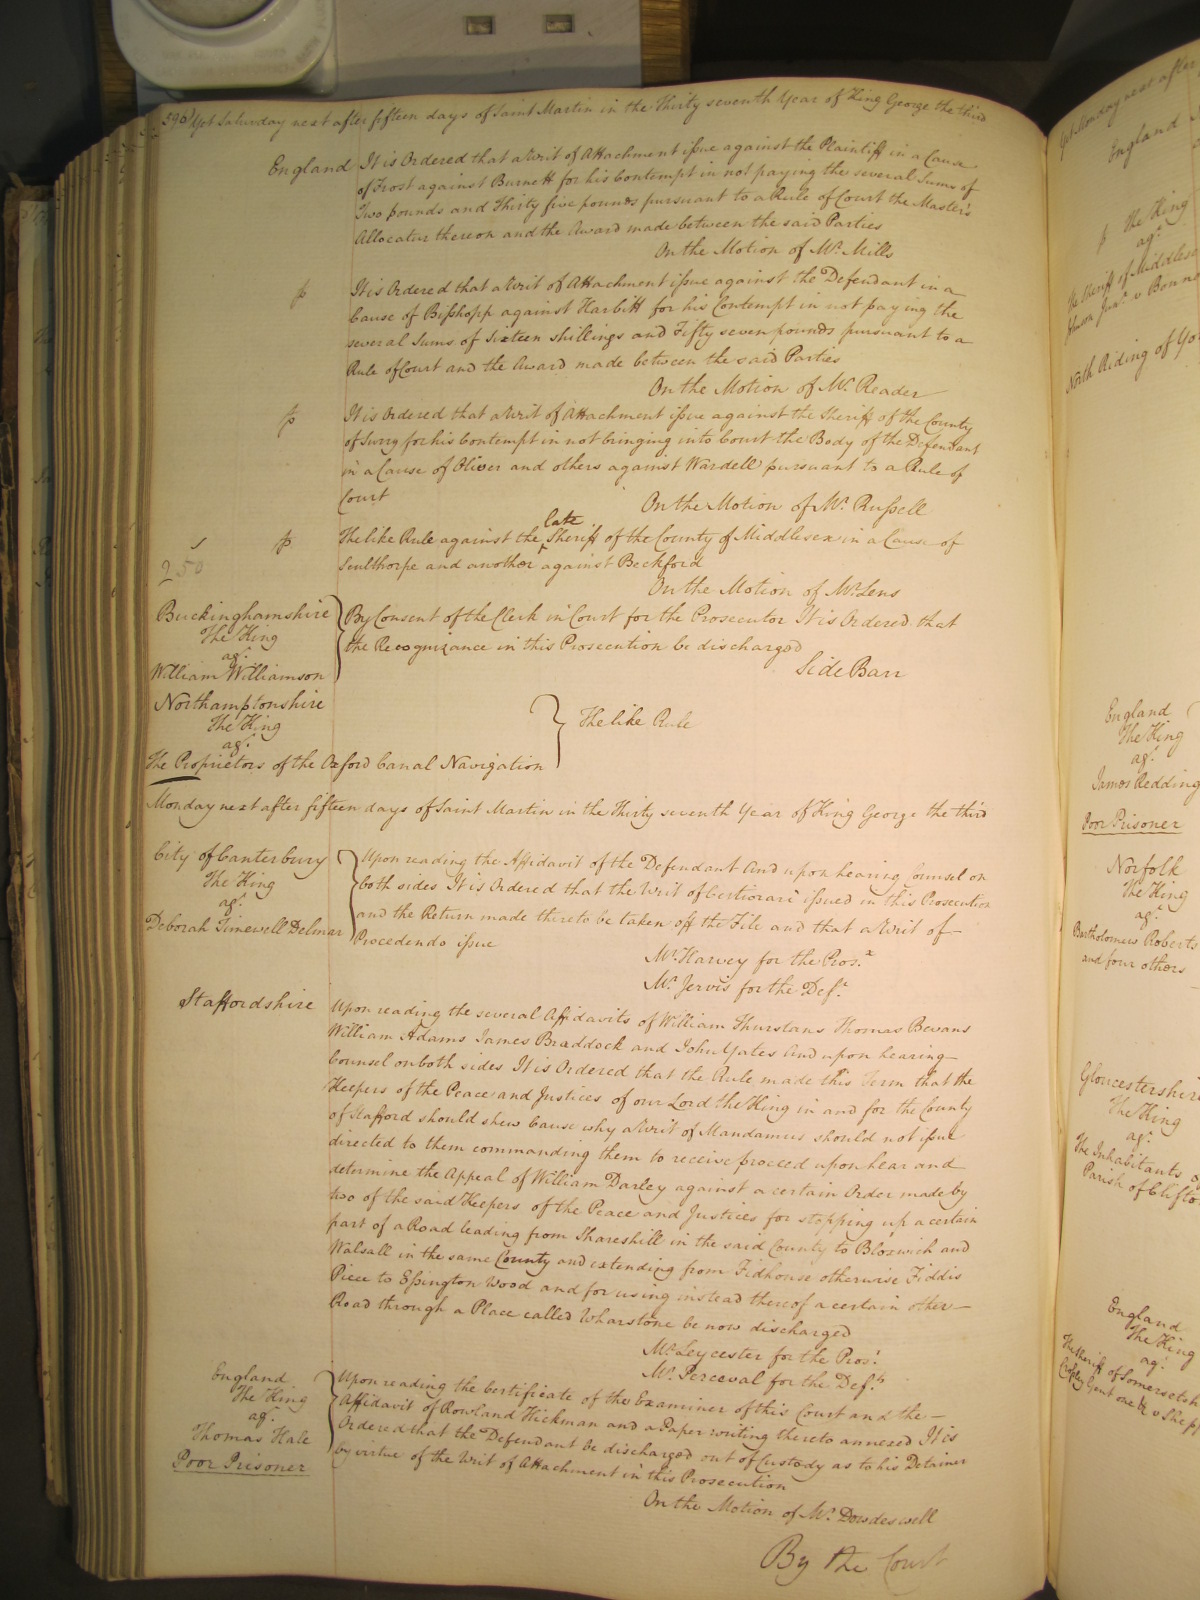 590 Yet Saturday next after fifteen days of Saint Martin in the Thirty seventh Year of King George the third
England It is Ordered that a Writ of Attachment issue against the Plaintiff in a Cause
of Frost against Burnett for his Contempt in not paying the several Sums of
Two pounds and Thirty five pounds pursuant to a Rule of Court the Master's
Allocatur thereon and the Award made between the said Parties
On the Motion of Mr. Mills
It is Ordered that a Writ of Attachment issue against the Defendant in a
Cause of Bisshopp against Harbitt for his Contempt in not paying the
several Sums of Sixteen shillings and Fifty seven pounds pursuant to a
Rule of Court and the Award made between the said Parties
On the Motion of Mr. Reader
It is Ordered that a Writ of Attachment issue against the Sheriff of the County
of Surry for his Contempt in not bringing into Court the Body of the Defendant
in a Cause of Oliver and others against Wardell pursuant to a Rule of
Court
On the Motion of Mr. Russell
late
The like Rule against the Sheriff of the County of Middlesex in a Cause of
Sculthorpe and another against Beckford
250
On the Motion of Mr. Lens
Buckinghamshire
The King
agt.
William Williamson
By Consent of the Clerk in Court for the Prosecutor It is Ordered that
the Recognizance in this Prosecution be discharged
Side Barr
Northamptonshire
The King
agt.
The Proprietors of the Oxford Canal Navigation
The like Rule
Monday next after fifteen days of Saint Martin in the Thirty seventh Year of King George the third
City of Canterbury
The King
agt.
Deborah Timewell Delmar
Upon reading the Affidavit of the Defendant And upon hearing Counsel on
both sides It is Ordered that the Writ of Certiorari issued in this Prosecution
and the Return made thereto be taken off the File and that a Writ of
Procedendo issue
Mr. Harvey for the Prosx.
Mr. Jervis for the Deft.
Staffordshire
Upon reading the several Affidavits of William Thurstans Thomas Bevans
William Adams James Braddock and John Yates And upon hearing
Counsel on both sides It is Ordered that the Rule made this Term that the
Keepers of the Peace and Justices of our Lord the King in and for the County
of Stafford should shew Cause why a Writ of Mandamus should not issue
directed to them commanding them to receive proceed upon hear and
determine the Appeal of William Darley against a certain Order made by
two of the said Keepers of the Peace and Justices for stopping up a certain
part of a Road leading from Shareshill in the said County to Bloxwich and
Walsall in the same County and extending from Fidhouse otherwise Fiddis
Piece to Essington Wood and for using instead thereof a certain other
Road through a Place called Wharstone be now discharged
Mr. Leycester for the Prosr.
Mr. Perceval for the Defts.
England
The King
agt.
Thomas Hale
Poor Prisoner
Upon reading the Certificate of the Examiner of this Court and the
Affidavit of Rowland Hickman and a Paper writing thereto annexed It is
Ordered that the Defendant be discharged out of Custody as to his Detainer
by virtue of the Writ of Attachment in this Prosecution
On the Motion of Mr. Dowdeswell
By the Court
Yet Monday next after
England
The King
agt.
The Sheriff of Middlesex
North Riding of Yo
England
The King
agt.
James Redding
Poor Prisoner
Norfolk
The King
agt.
Bartholomew Roberts
and four others
Gloucestershire
The King
agt.
The Inhabitants o
Parish of Clifto
England
The King
agt.
The Sheriff of Somersetsh
Gent one &c v Shepp